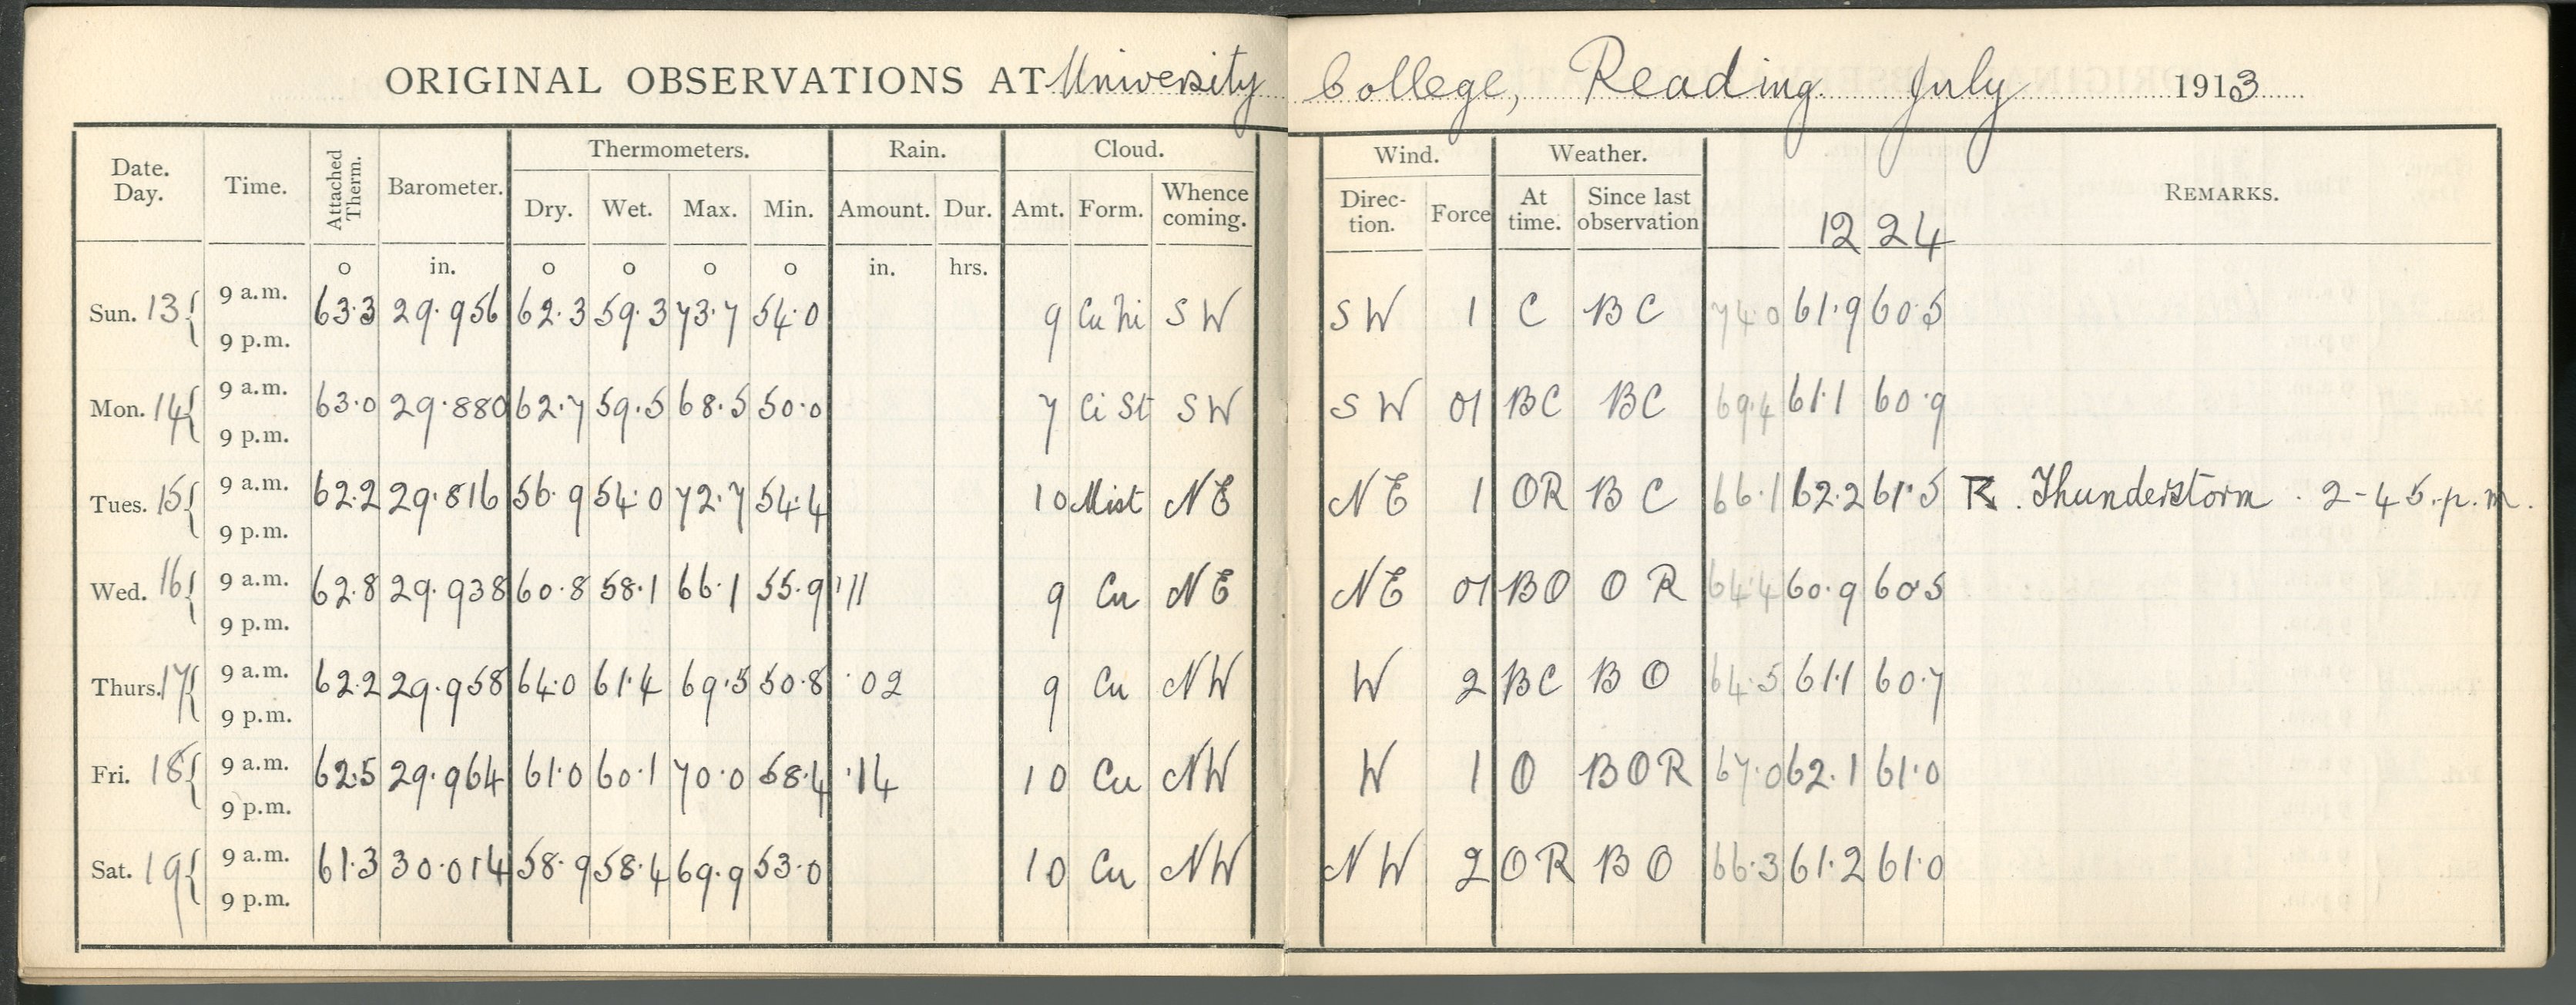 ORIGINAL OBSERVATIONS AT University College, Reading. July 1913
Date. Day. Time. Attached Therm. Barometer. Thermometers. Rain. Cloud. Wind. Weather. REMARKS.
Dry. Wet. Max. Min. Amount. Dur. Amt. Form. Whence coming. Direc- tion. Force At time. Since last observation 12 24
o in. o o o o in. hrs.
Sun. 13 { 9 a.m. 63.3 29.956 62.3 59.3 73.7 54.0 9 Cu Ni SW SW 1 C BC 74.0 61.9 60.5
9 p.m.
Mon. 14 { 9 a.m. 63.0 29.880 62.7 59.5 68.5 50.0 7 Ci St SW SW 01 BC BC 69.4 61.1 60.9
9 p.m.
Tues. 15 { 9 a.m. 62.2 29.816 56.9 54.0 72.7 54.4 10 Mist NE NE 1 OR BC 66.1 62.2 61.5 Thunderstorm. 2-45.p.m.
9 p.m.
Wed. 16 { 9 a.m. 62.8 29.938 60.8 58.1 66.1 55.9 .11 9 Cu NE NE 01 BO OR 64.4 60.9 60.5
9 p.m.
Thurs. 17 { 9 a.m. 62.2 29.958 64.0 61.4 69.5 50.8 .02 9 Cu NW W 2 BC BO 64.5 61.1 60.7
9 p.m.
Fri. 18 { 9 a.m. 62.5 29.964 61.0 60.1 70.0 58.4 .14 10 Cu NW W 1 O BOR 67.0 62.1 61.0
9 p.m.
Sat. 19 { 9 a.m. 61.3 30.014 58.9 58.4 69.9 53.0 10 Cu NW NW 2 OR BO 66.3 61.2 61.0
9 p.m.